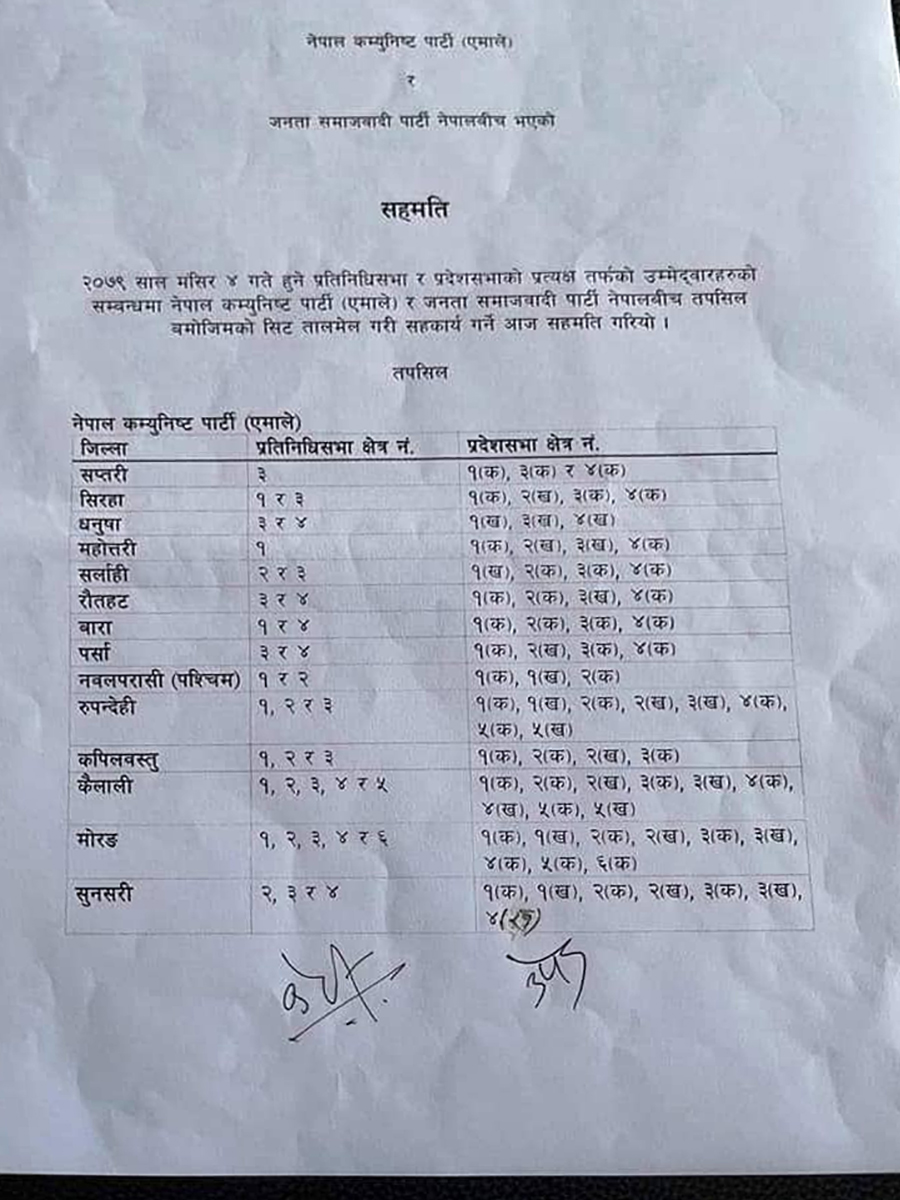 नेपाल कम्युनिष्ट पार्टी (एमाले)
र
जनता समाजवादी पार्टी नेपालबीच भएको
सहमति
२०७९ साल मंसिर ४ गते हुने प्रतिनिधिसभा र प्रदेशसभाको प्रत्यक्ष तर्फको उम्मेद्वारहरुको
सम्बन्धमा नेपाल कम्युनिष्ट पार्टी (एमाले) र जनता समाजवादी पार्टी नेपालबीच तपसिल
बमोजिमको सिट तालमेल गरी सहकार्य गर्ने आज सहमति गरियो ।
तपसिल
नेपाल कम्युनिष्ट पार्टी (एमाले)
जिल्ला प्रतिनिधिसभा क्षेत्र नं. प्रदेशसभा क्षेत्र नं.
सप्तरी ३ १(क), ३(क) र ४(क)
सिरहा १ र ३ १(क), २(ख), ३(क), ४(क)
धनुषा ३ र ४ १(ख), ३(ख), ४(ख)
महोत्तरी १ १(क), २(ख), ३(ख), ४(क)
सर्लाही २ र ३ १(ख), २(क), ३(क), ४(क)
रौतहट ३ र ४ १(क), २(क), ३(ख), ४(क)
बारा १ र ४ १(क), २(क), ३(क), ४(क)
पर्सा ३ र ४ १(क), २(ख), ३(क), ४(क)
नवलपरासी (पश्चिम) १ र २ १(क), १(ख), २(क)
रुपन्देही १, २ र ३ १(क), १(ख), २(क), २(ख), ३(ख), ४(क),
५(क), ५(ख)
कपिलवस्तु १, २ र ३ १(क), २(क), २(ख), ३(क)
कैलाली १, २, ३, ४ र ५ १(क), २(क), २(ख), ३(क), ३(ख), ४(क),
४(ख), ५(क), ५(ख)
मोरङ १, २, ३, ४ र ६ १(क), १(ख), २(क), २(ख), ३(क), ३(ख),
४(क), ५(क), ६(क)
सुनसरी २, ३ र ४ १(क), १(ख), २(क), २(ख), ३(क), ३(ख),